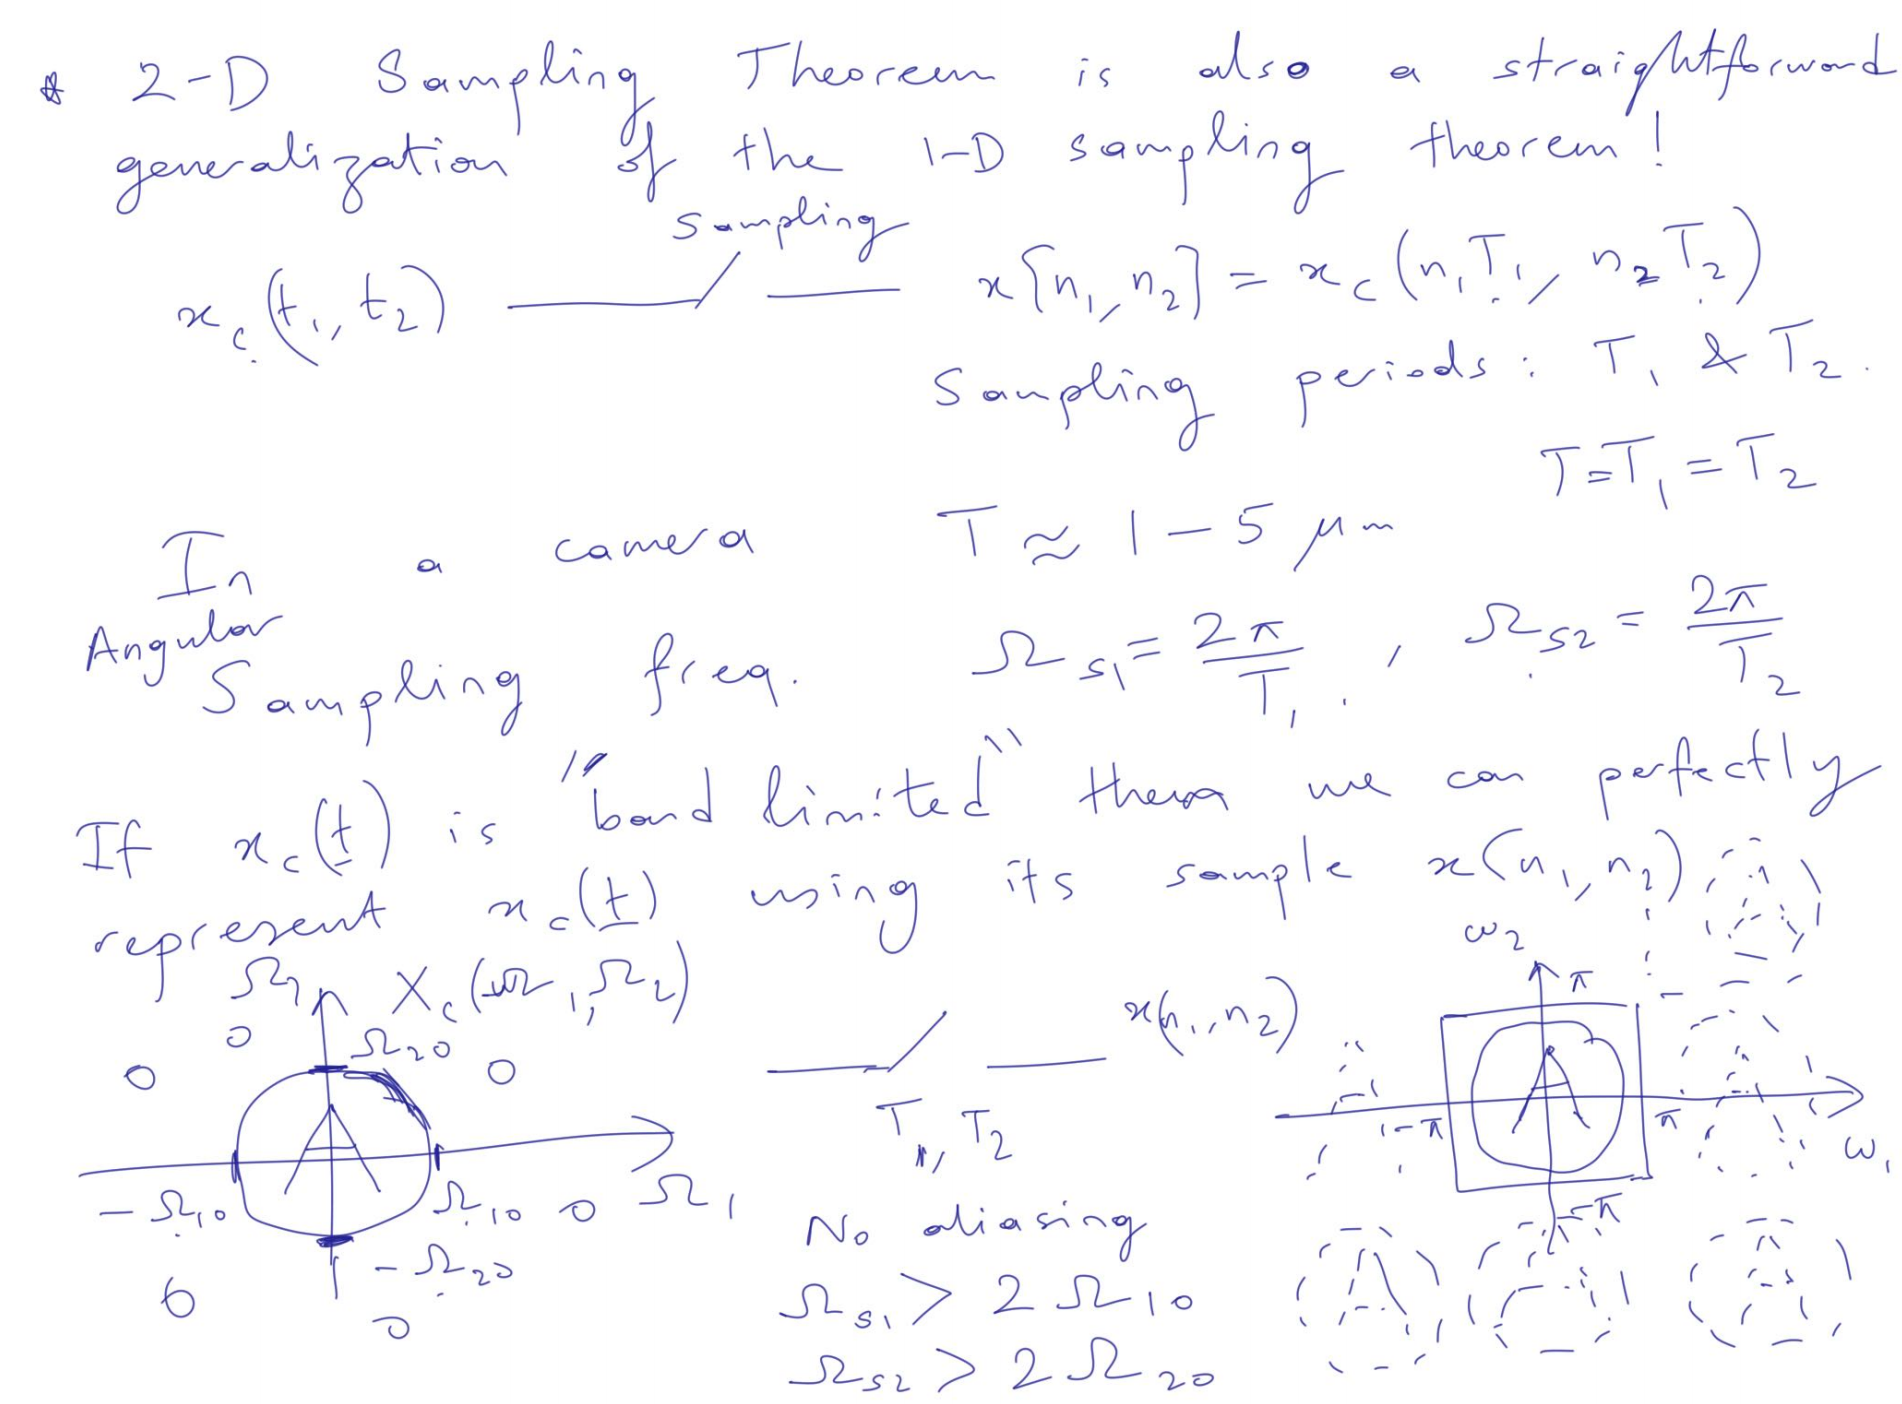 * 2-D Sampling Theorem is also a straightforward
generalization of the 1-D sampling theorem!
Sampling
x_c(t_1, t_2) x[n_1, n_2] = x_c(n_1T_1, n_2T_2)
Sampling periods: T_1 & T_2.
T=T_1=T_2
In a camera T ≈ 1-5 μm
Angular
Sampling freq. Ω_s1 = 2π/T_1, Ω_s2 = 2π/T_2
If x_c(t) is "band limited" then we can perfectly
represent x_c(t) using its sample x(n_1, n_2)
Ω_2 X_c(Ω_1, Ω_2) ω_2
0 Ω_20 x(n_1, n_2) π
0 0
T_1, T_2 -π π ω_1
-Ω_10 Ω_10 0 Ω_1
No aliasing -π
-Ω_20
0 Ω_s1 > 2Ω_10
0 Ω_s2 > 2Ω_20